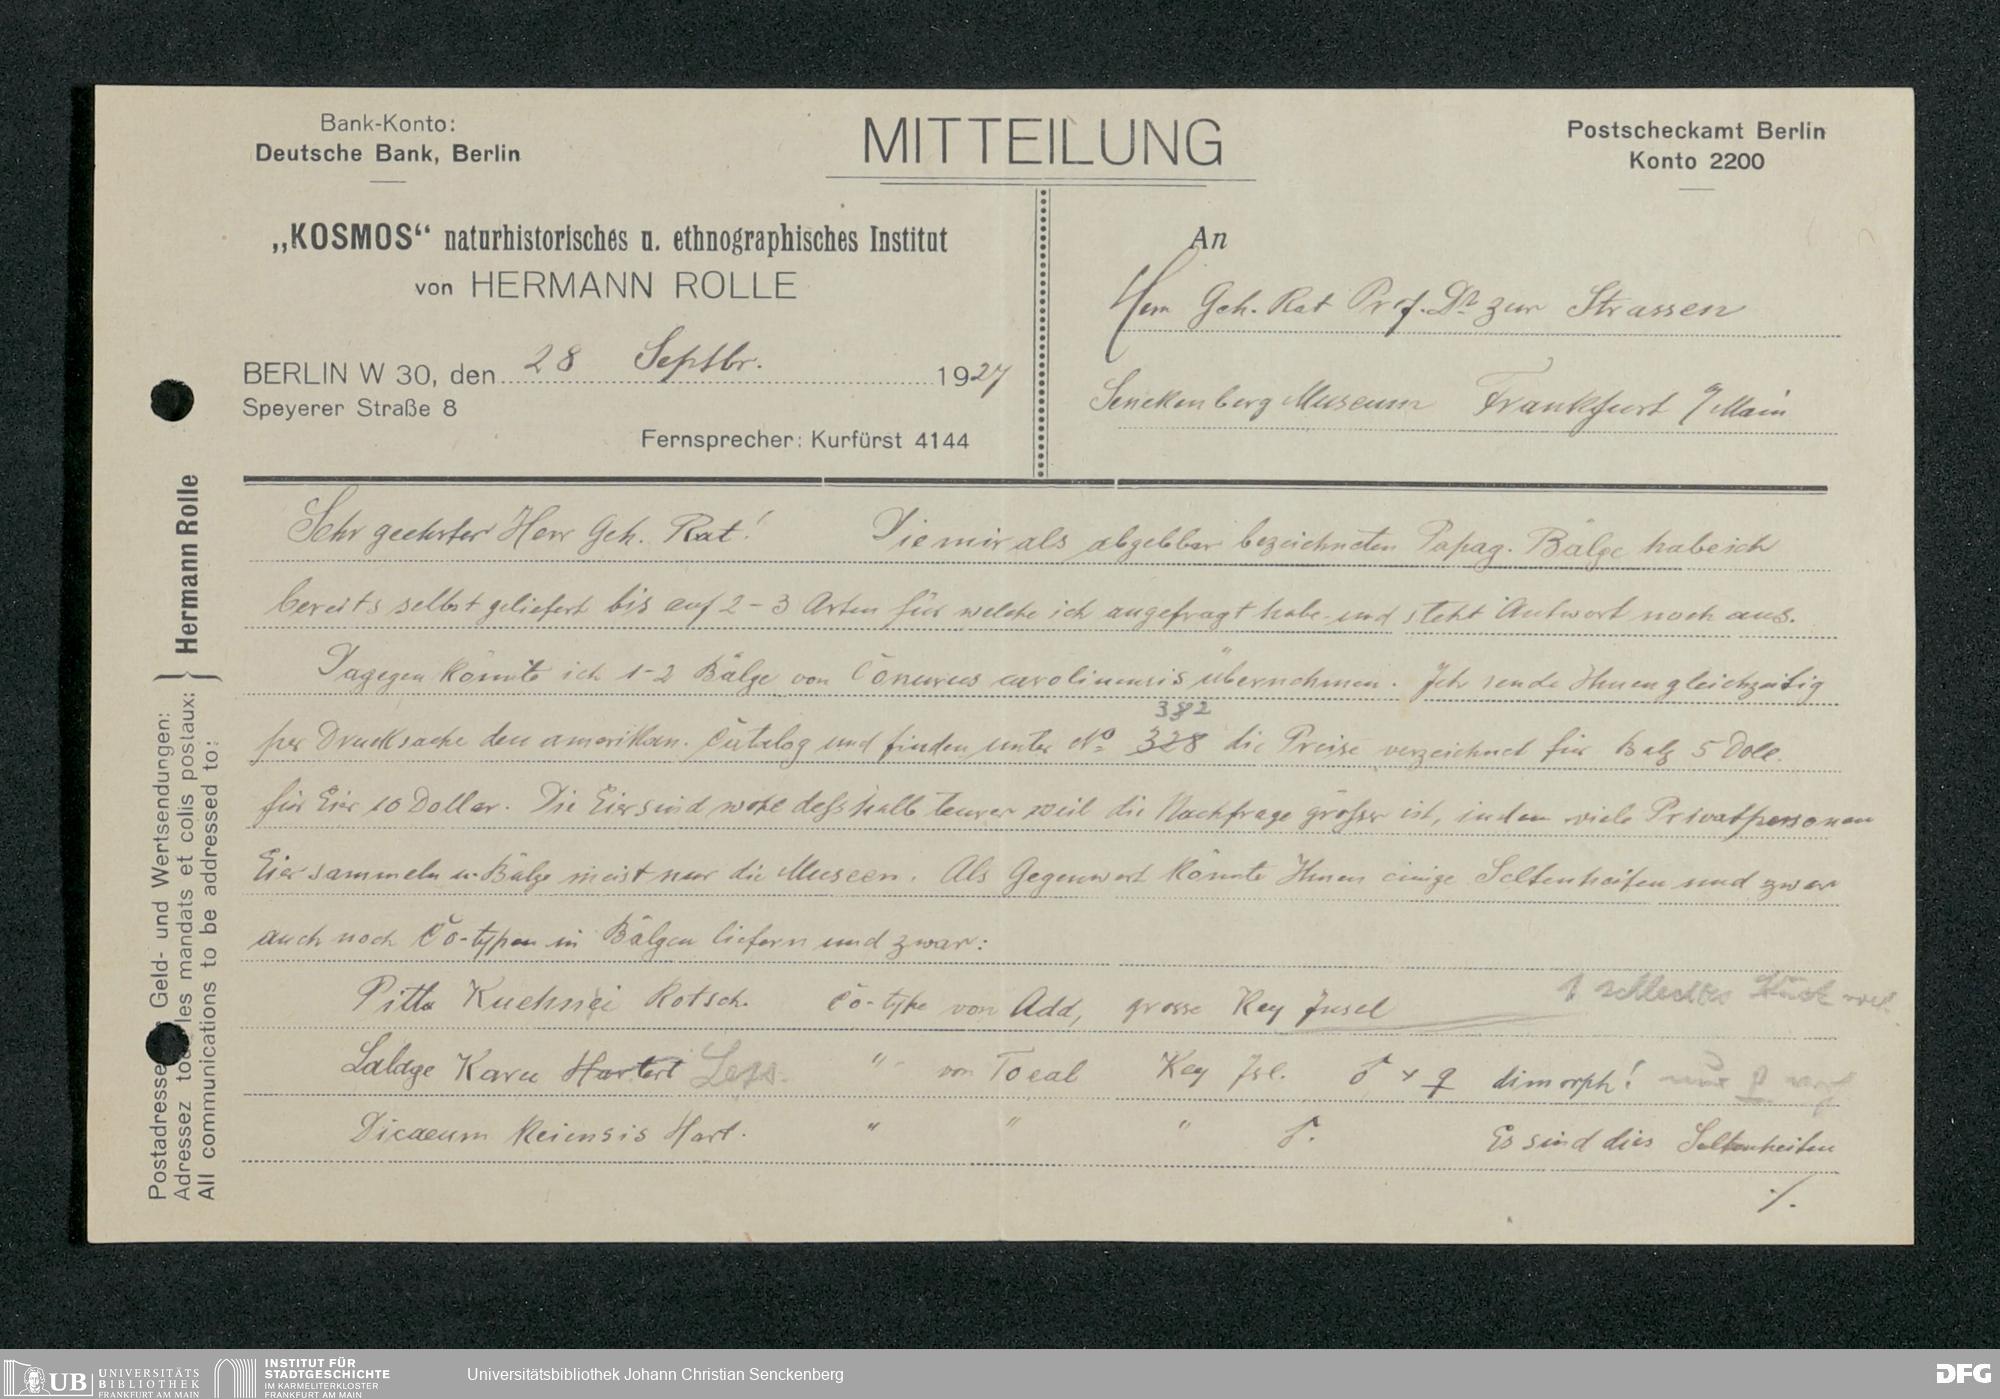 Bank-Konto:
Deutsche Bank, Berlin
MITTEILUNG
Postscheckamt Berlin
Konto 2200
„KOSMOS“ naturhistorisches u. ethnographisches Institut
von HERMANN ROLLE
BERLIN W 30, den 28 Septbr. 1927
Speyerer Straße 8
Fernsprecher: Kurfürst 4144
An
Herrn Geh. Rat Prof. Dr zur Strassen
Senckenberg Museum Frankfurt a/Main
Postadresse Geld- und Wertsendungen:
Adressez les mandats et colis postaux:
All communications to be addressed to:
Hermann Rolle
Sehr geehrter Herr Geh. Rat! Die mir als abgebbar bezeichneten Papag. Bälge habe ich
bereits selbst geliefert bis auf 2-3 Arten für welche ich angefragt habe und steht Antwort noch aus.
Dagegen könnte ich 1-2 Bälge von Conurus carolinensis übernehmen. Ich sende Ihnen gleichzeitig
per Drucksache den amerikan. Catalog und finden unter No 328 382 die Preise verzeichnet für Balg 5 Doll.
für Eier 10 Dollar. Die Eier sind wohl desshalb teurer weil die Nachfrage grösser ist, indem viele Privatpersonen
Eier sammeln u. Bälge meist nur die Museen. Als Gegenwert könnte Ihnen einige Seltenheiten und zwar
auch noch Co-typen in Bälgen liefern und zwar:
Pitta Kuehnei Rotsch. Co-type von Add, grosse Key Insel 1 schlechtes Stück
Lalage Karu Hartert Less. " von Toeal Key Isl. ♂ + ♀ dimorph! nur ♀
Dicaeum Keiensis Hart. " " " ♂. Es sind dies Seltenheiten
./.
UB UNIVERSITÄTS
BIBLIOTHEK
FRANKFURT AM MAIN
INSTITUT FÜR
STADTGESCHICHTE
IM KARMELITERKLOSTER
FRANKFURT AM MAIN
Universitätsbibliothek Johann Christian Senckenberg
DFG